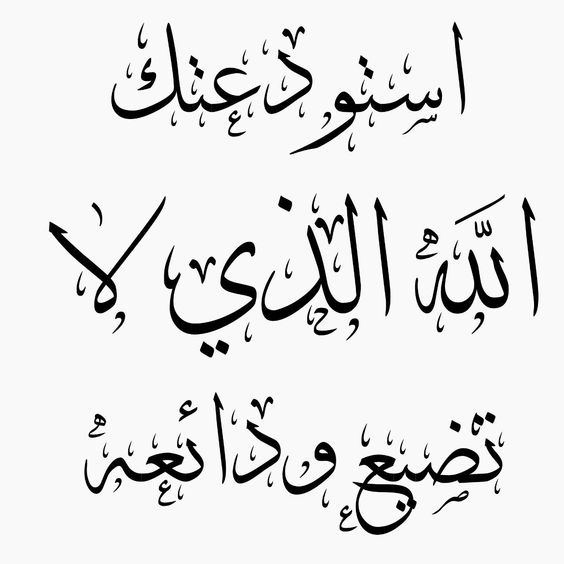 استودعتك
اللهُ الذي لا
تضيع ودائعه